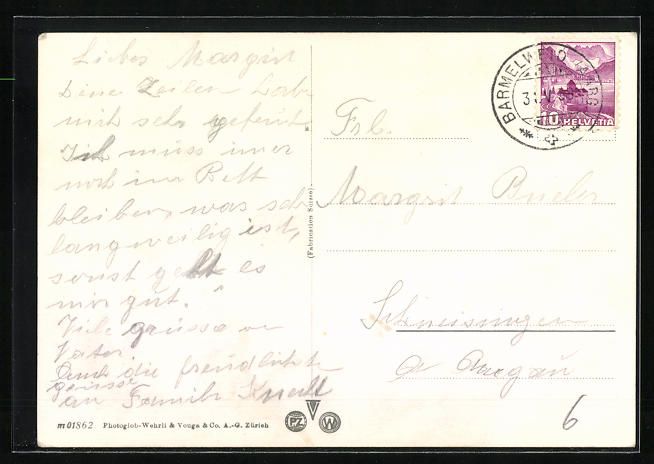 Liebes Margrit
Deine Zeilen hab
mich sehr gefreut
Ich muss imer
noch im Bett
bleiben, was sehr
langweilig ist,
sonst geht es
mir gut.
Viele grüsse an
Vater
Auch die freundlichst
grüsse
an Familie
Frl.
Margrit Bucher
Schneisingen
Aargau
6
BARMELWEID (AARGAU)
10 HELVETIA
(Fabrication Suisse)
m 01862 Photoglob-Wehrli & Vouga & Co. A.-G. Zürich
PZ V W